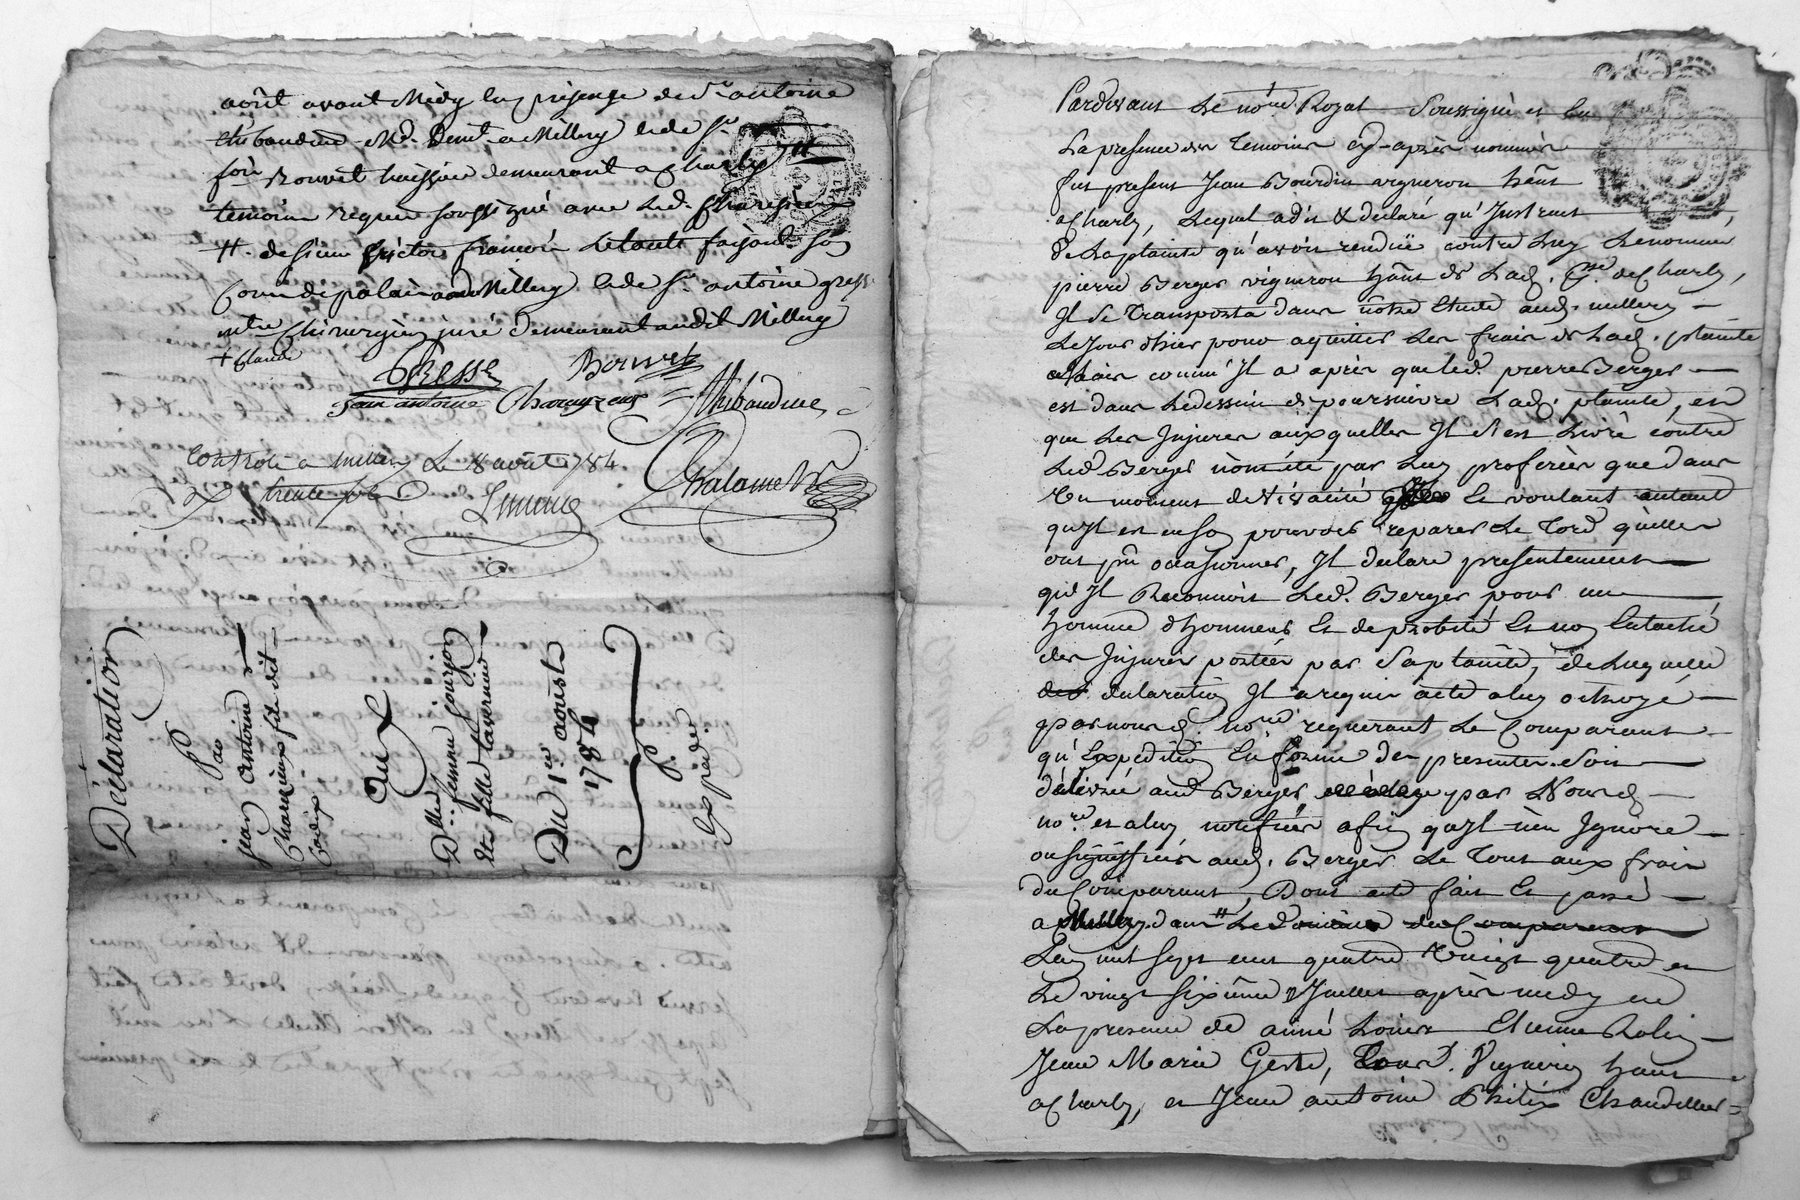 août avant Midy en présence de Sr antoine
thibaudier Md. demt. a Millery & de Sr
fois Bouvet huissier demeurant a Charly #
temoins requis soussigné avec led. Charezieux
#. de sieur françois faisant son
Cour de palais aud Millery & de Sr antoine gresse
mtre Chirurgien juré demeurant audit Millery
+ Claude
Gresse Bouvet
jean antoine Charezieux Thibaudier
Controlé a Millery Le 8 août 1784
trente sols
Chalamel
Déclaration
Par
jean antoine
Charezieux fils dit
Cadix
Aux
Dlle femme gourjon
et fille tavernier
Du 1er aoust
1784
P.
Expédiée
Pardevant Le nore. Royal Soussigné et En
La presence des temoins cy-après nommés
fut present Jean Bourdin vigneron hânt
a Charly, Lequel a dit & declaré qu'Instruit
de La plainte qu'avoit rendüe contre Luy Le nommé
pierre Berger vigneron hânt de Lad. Pse. de Charly,
Il Se Transporta dans nôtre Etude aud. millery
Le Jour d'hier pour aquitter Les frais de Lad. plainte
Mais comm' Il a apris que led. pierre Berger
est dans Le dessein de poursuivre Lad. plainte, et
que Les Injures auxquelles Il S'est Livré contre
Led. Berger n'ont été par Luy proferées que dans
Un moment de vivacité Et voulant autant
qu'Il est en son pouvoir reparer Le Tord qu'elles
ont pû occasionner, Il declare presentement
qu'Il Reconnoit Led. Berger pour un
homme d'honneur Et de probité Et non Entaché
des Injures portées par Sa plainte, de Laquelle
declaration Il a requis acte a luy octroyé
par nous d. nore requerant Le Comparant
qu'Expedition En forme des presentes Soit
délivrée aud Berger par Nousd.
nore. et a luy notifiée afin qu'Il n'en Ignore
ou signiffiée aud. Berger Le Tout aux frais
du Comparant, Dont acte fait Et passé
a Millery dans # Le Domicile du Comparant
L'an mil Sept cent quatre Vingt quatre et
Le vingt Sixième Juillet après midy en
La presence de aimé Louis Etienne Rolin
Jean Marie Geste, Tous d. Vigneron hant
a Charly, et Jean antoine Philix Chandellier